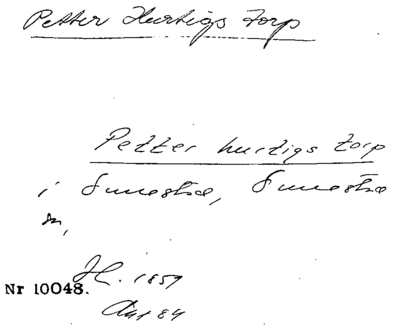 Petter Hurtigs torp
Petter hurtigs torp
i Smestad, Smestad
sn,
H. 1859
Nr 10048.
Akt 84